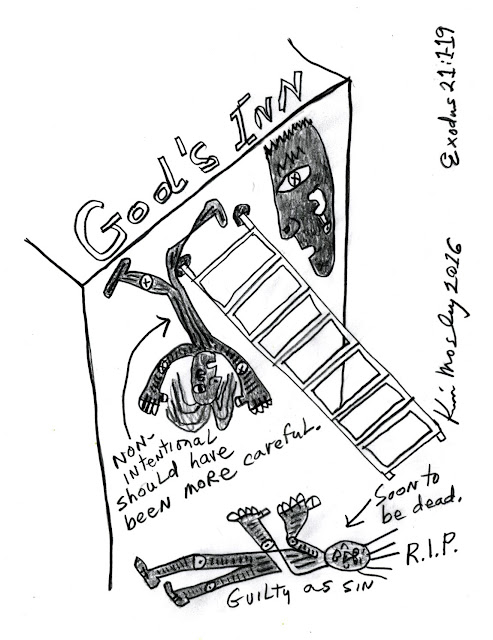 God's Inn
Exodus 21:1-19
Kim Mosley 2016
Non-
intentional
should have
been more careful.
Soon to
be dead.
R.I.P.
Guilty as sin